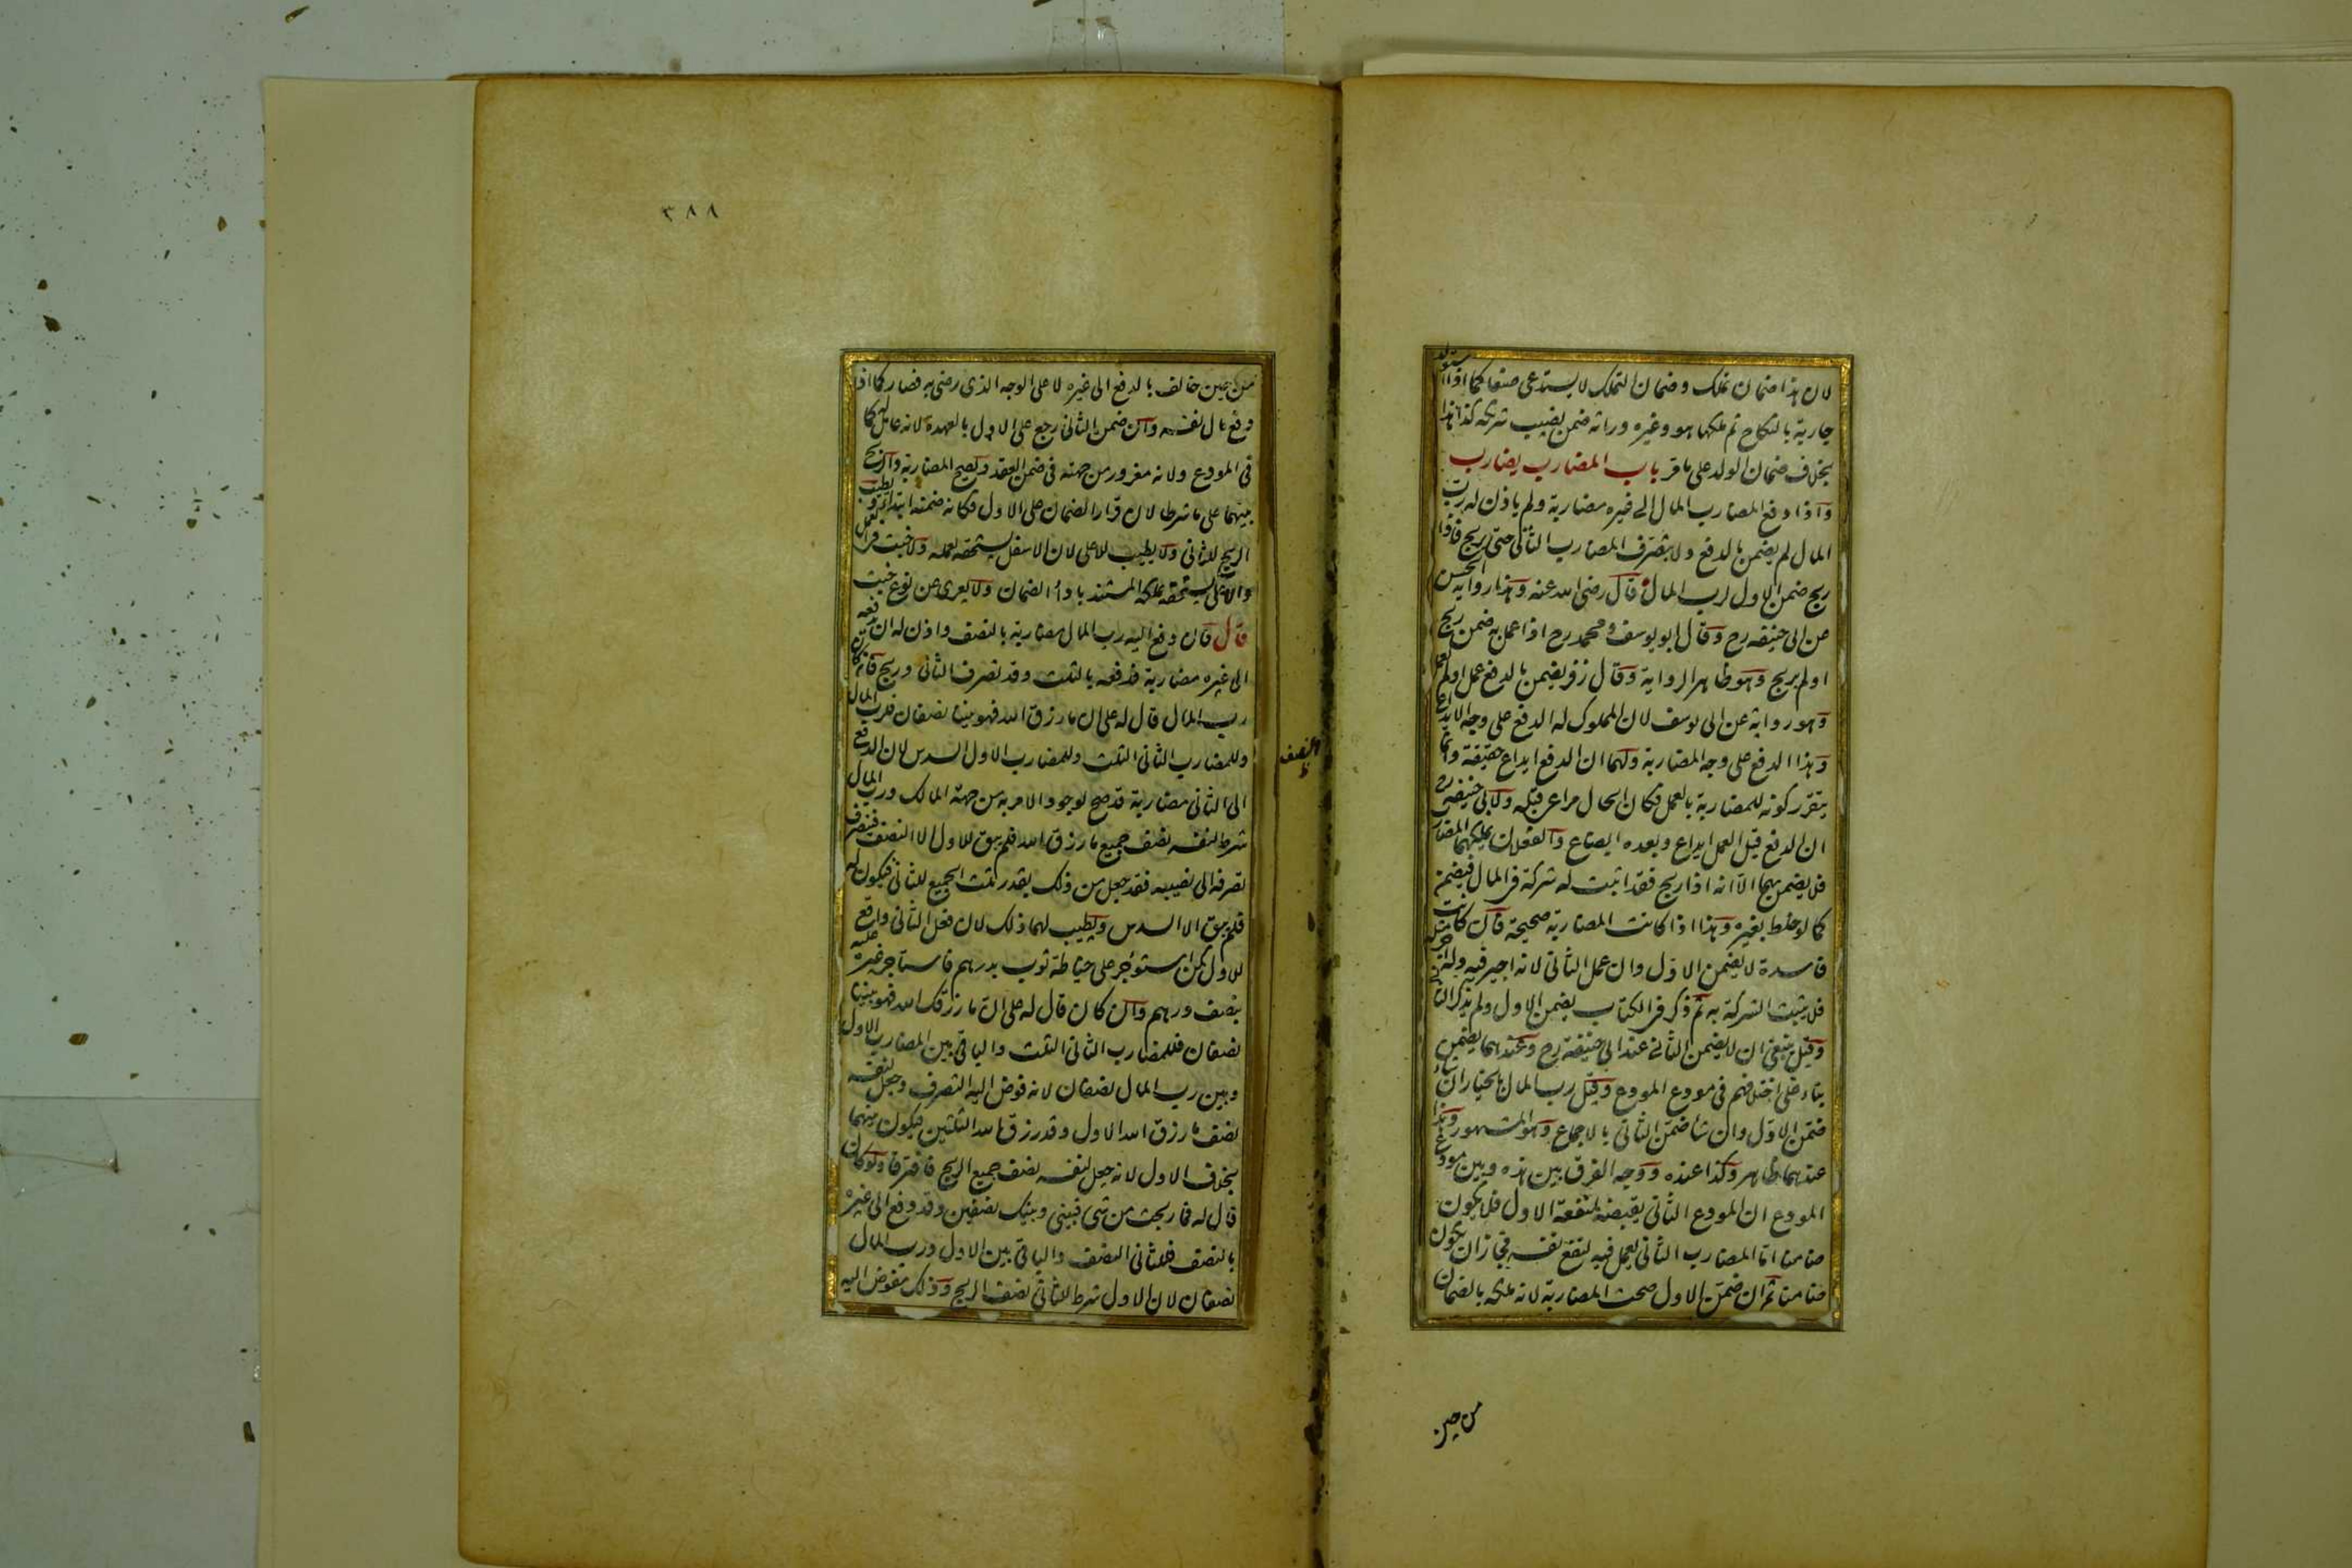 لان هذا ضمان تملك وضمان التملك لا يستدعى صنعا كما اذا استولد
جارية بالنكاح ثم ملكها هو وغيره وراثة ضمن نصيب شريكه كذا هذا
بخلاف ضمان الولد على ما مر باب المضارب يضارب
واذا دفع المضارب المال الى غيره مضاربة ولم ياذن له رب
المال لم يضمن بالدفع ولا بتصرف المضارب الثانى حتى يربح فاذا
ربح ضمن الاول لرب المال قال رضى الله عنه وهذا رواية الحسن
عن ابى حنيفه رح وقال ابو يوسف ومحمد رح اذا عمل به ضمن ربح
اولم يربح وهو ظاهر الرواية وقال زفر يضمن بالدفع عمل اولم يعمل
وهو رواية عن ابى يوسف لان المملوك له الدفع على وجه الايداع
وهذا الدفع على وجه المضاربة ولهما ان الدفع ايداع حقيقة وانما
يتقرر كونه للمضاربة بالعمل فكان الحال مراعى قبله ولابى حنيفه رح
ان الدفع قبل العمل ايداع وبعده ابضاع والفعلان يملكهما المضارب
فلا يضمن بهما الا انه اذا ربح فقد اثبت له شركة فى المال فيضمن
كما لو خلط بغيره وهذا اذا كانت المضاربة صحيحة فان كانت
فاسدة لا يضمن الاول وان عمل الثانى لانه اجير فيه وله اجر مثله
فلا يثبت الشركة به ثم ذكر فى الكتاب يضمن الاول ولم يذكر الثانى
وقيل ينبغى ان لا يضمن الثانى عند ابى حنيفة رح وعندهما يضمن
بناء على اختلافهم فى مودع المودع وقيل رب المال بالخيار ان شاء
ضمن الاول وان شا ضمن الثانى بالاجماع وهو المشهور وهذا
عندهما ظاهر وكذا عنده ووجه الفرق بين هذه وبين مودع
المودع ان المودع الثانى يقبضه لمنفعة الاول فلا يكون
ضامنا اما المضارب الثانى يعمل فيه لنفع نفسه فجاز ان يكون
ضامنا ثم ان ضمن الاول صحت المضاربة لانه ملكه بالضمان
من حين
٣٨٨
من حين خالف بالدفع الى غيره لا على الوجه الذى رضى به فصار كما اذا
دفع مال نفسه وان ضمن الثانى رجع على الاول بالعهدة لانه عامل له كما
فى المودع ولانه مغرور من جهته فى ضمن العقد وتصح المضاربة والربح
بينهما على ما شرطا لان قرار الضمان على الاول فكانه ضمنه ابتداء ويطيب
الربح للثانى ولا يطيب للاعلى لان الاسفل يستحقه بعمله ولا خبث فى العمل
والاعلى يستحقه بملكه المستند باداء الضمان ولا يعرى عن نوع خبث
قال فان دفع اليه رب المال مضاربة بالنصف واذن له ان يدفعه
الى غيره مضاربة فدفعه بالثلث وقد تصرف الثانى وربح فان كان
رب المال قال له على ان ما رزق الله فهو بيننا نصفان فلرب المال النصف
وللمضارب الثانى الثلث وللمضارب الاول السدس لان الدفع
الى الثانى مضاربة قد صح لوجود الامر به من جهة المالك ورب المال
شرط لنفسه نصف جميع ما رزق الله فلم يبق للاول الا النصف فينصرف
تصرفه الى نصيبه فقد جعل من ذلك بقدر ثلث الجميع للثانى فيكون له
فلم يبق الا السدس ويطيب لهما ذلك لان فعل الثانى واقع
للاول كمن استؤجر على خياطة ثوب بدرهم فاستاجر غيره عليه
بنصف درهم وان كان قال له على ان ما رزقك الله فهو بيننا
نصفان فللمضارب الثانى الثلث والباقى بين المضارب الاول
وبين رب المال نصفان لانه فوض اليه التصرف وجعل لنفسه
نصف ما رزق الله الاول وقد رزق الله الثلثين فيكون بينهما
بخلاف الاول لانه جعل لنفسه نصف جميع الربح فافترقا ولو كان
قال له فما ربحت من شى فبينى وبينك نصفين وقد دفع الى غيره
بالنصف فللثانى النصف والباقى بين الاول ورب المال
نصفان لان الاول شرط للثانى نصف الربح وذلك مفوض اليه